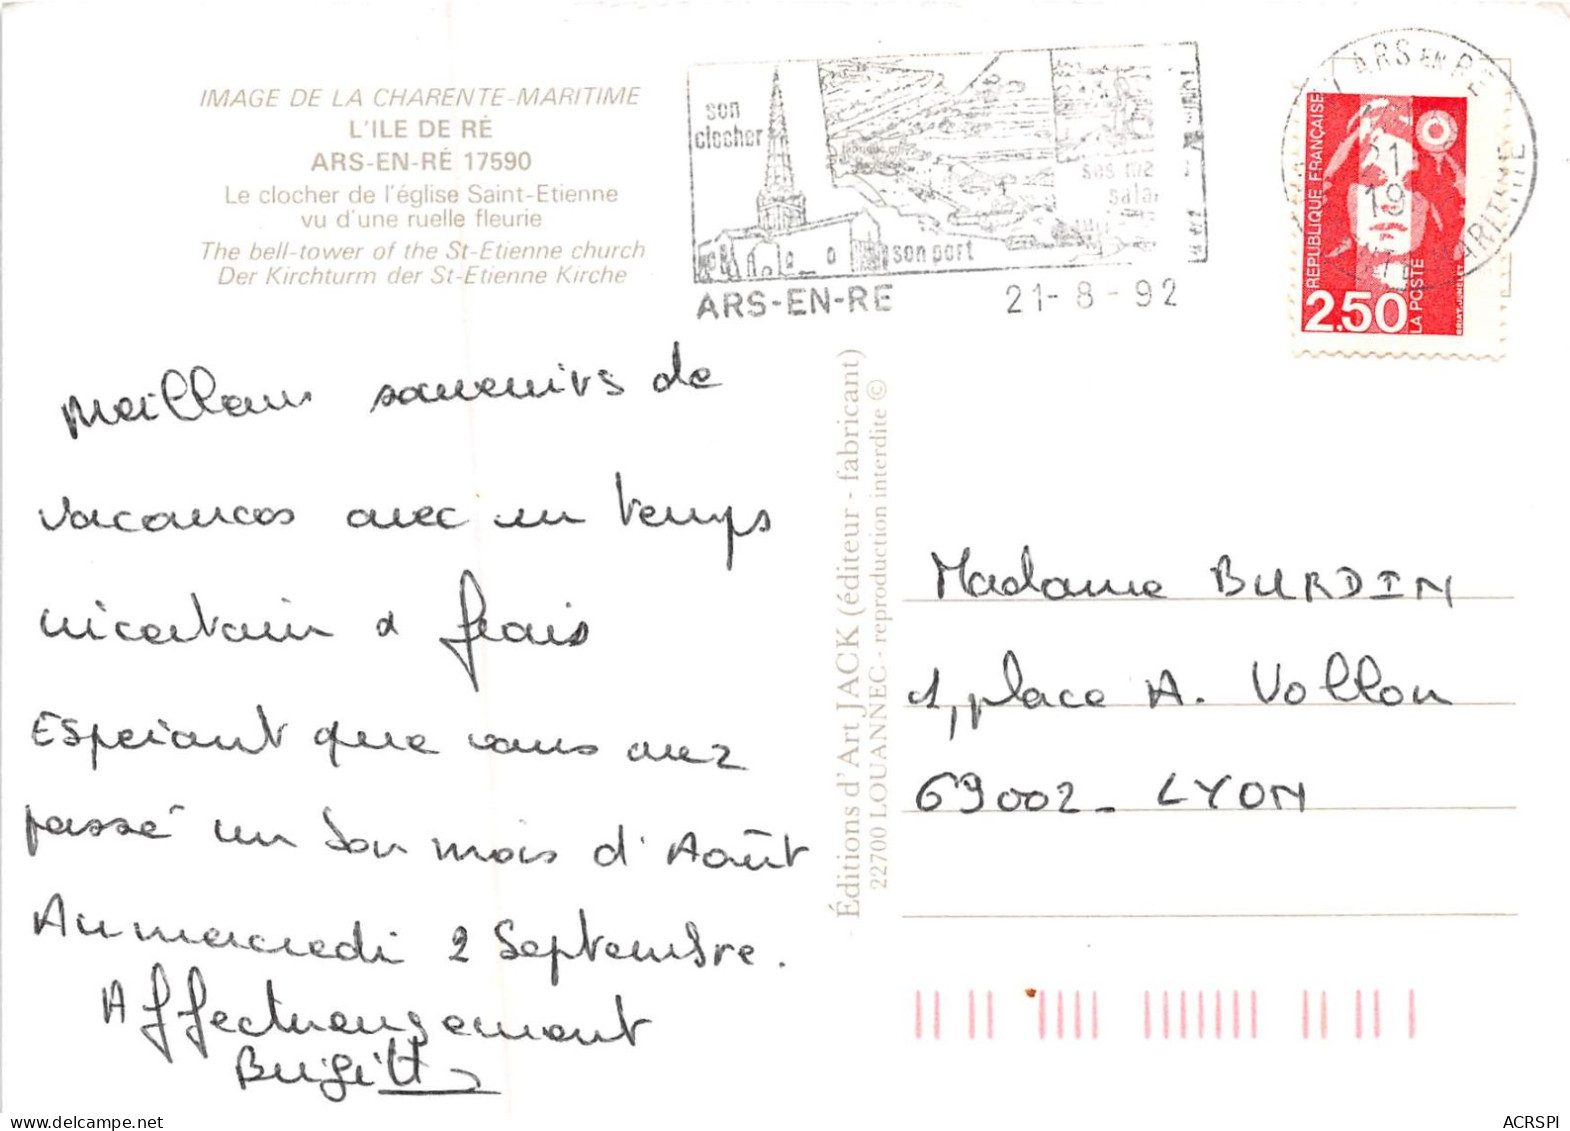 IMAGE DE LA CHARENTE-MARITIME
L'ILE DE RÉ
ARS-EN-RÉ 17590
Le clocher de l'église Saint-Etienne
vu d'une ruelle fleurie
The bell-tower of the St-Etienne church
Der Kirchturm der St-Etienne Kirche
son
clocher
son port
ses
ARS-EN-RE 21-8-92
ARS EN RE
21
19
REPUBLIQUE FRANÇAISE
2.50
LA POSTE
BRIAT-JUMELET
Meilleurs souvenirs de
vacances avec un temps
incertain & frais
Espérant que vous avez
passé un bon mois d'Août
Au mercredi 2 Septembre.
Affectueusement
Brigitte
Éditions d'Art JACK (éditeur - fabricant)
22700 LOUANNEC - reproduction interdite ©
Madame BURDIN
1, place A. Vollon
69002 - LYON
ACRSPI